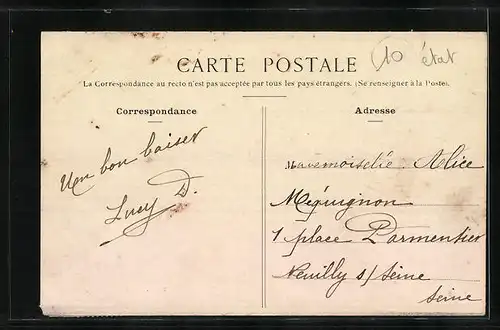 10 état
CARTE POSTALE
La Correspondance au recto n'est pas acceptée par tous les pays étrangers. (Se renseigner à la Poste).
Correspondance
Adresse
Un bon baiser
Lucy D.
Mademoiselle Alice
Méquignon
1 place Parmentier
Neuilly s/ Seine
Seine